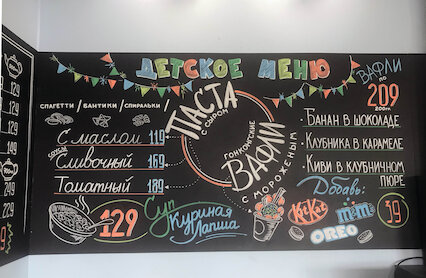 ДЕТСКОЕ МЕНЮ
СПАГЕТТИ / БАНТИКИ / СПИРАЛЬКИ /
ПАСТА
С СЫРОМ
С маслом 119
соусы
Сливочный 169
Томатный 189
129
Суп
Куриная
Лапша
ГОНКОНГСКИЕ
ВАФЛИ
С МОРОЖЕНЫМ
ВАФЛИ
ПО
209
200гр.
- БАНАН В ШОКОЛАДЕ
- КЛУБНИКА В КАРАМЕЛЕ
- КИВИ В КЛУБНИЧНОМ
ПЮРЕ
Добавь:
KitKat
m&m's
39
OREO
129
129
149
249
299